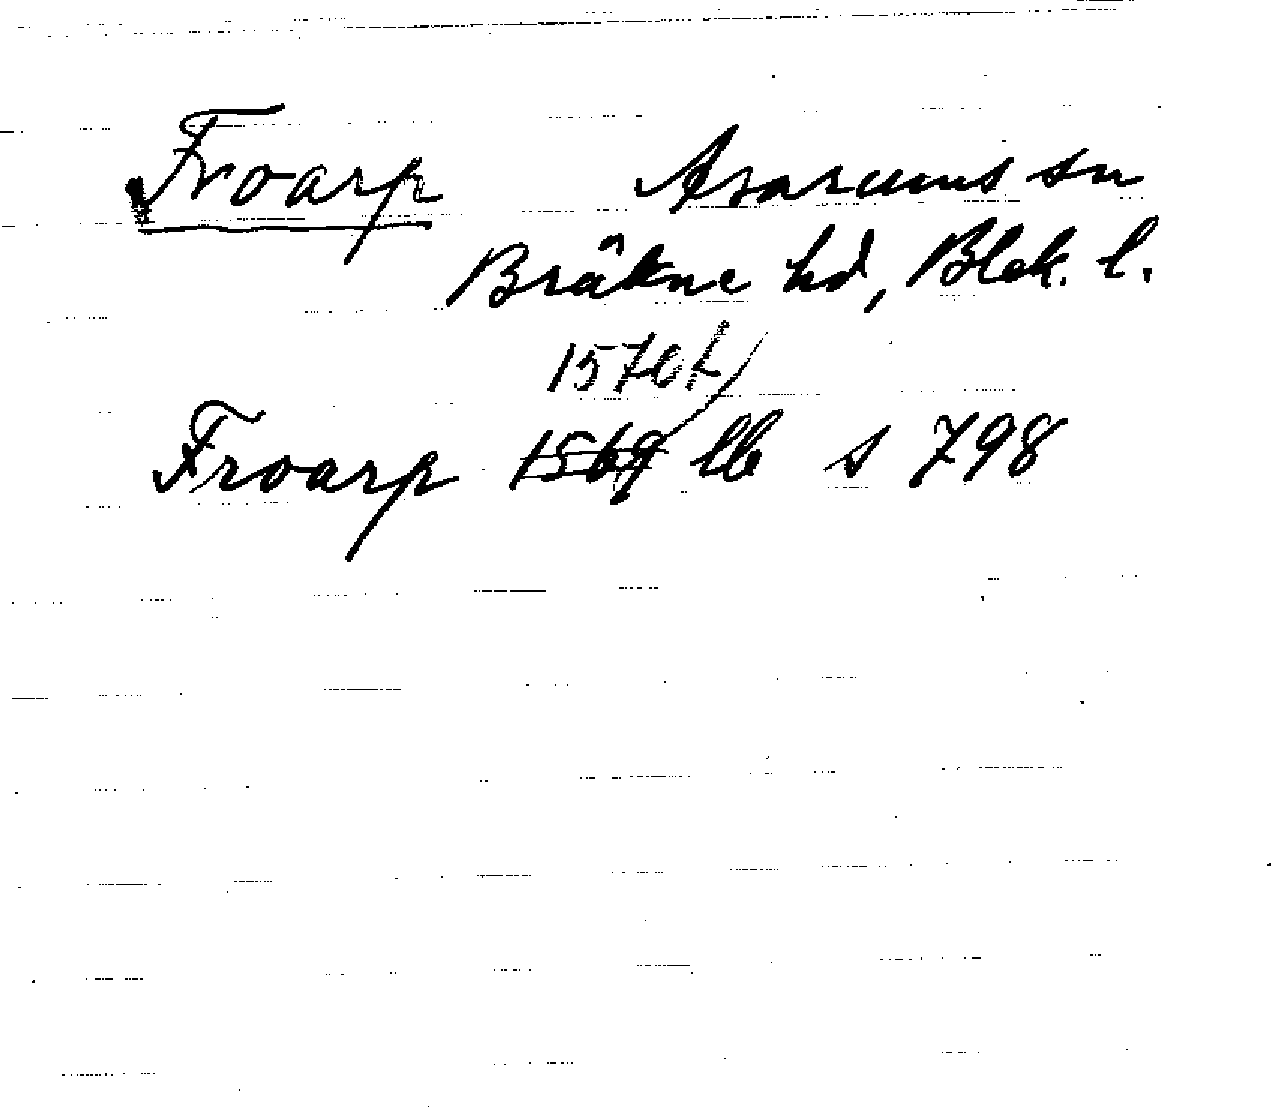 Froarp Asarums sn
Bräkne hd, Blek. l.
Froarp 1569 lb s 798